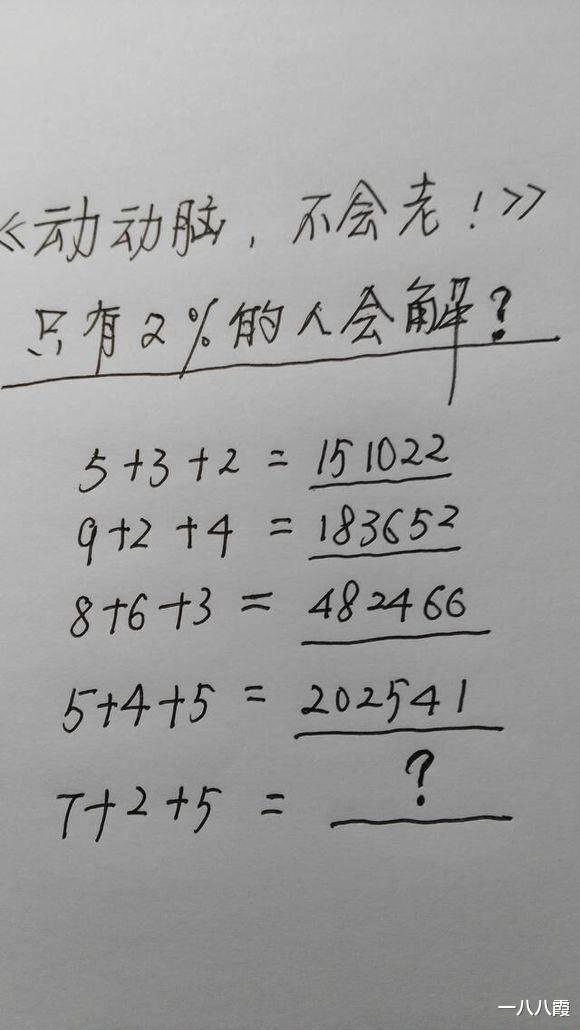 《动动脑，不会老！》
只有2%的人会解？
5+3+2=151022
9+2+4=183652
8+6+3=482466
5+4+5=202541
7+2+5=?
一八八霞